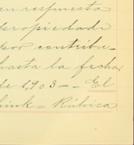 en respuesta
propiedad
por contribu-
hasta la fecha
de 1903 - El
Rúbrica